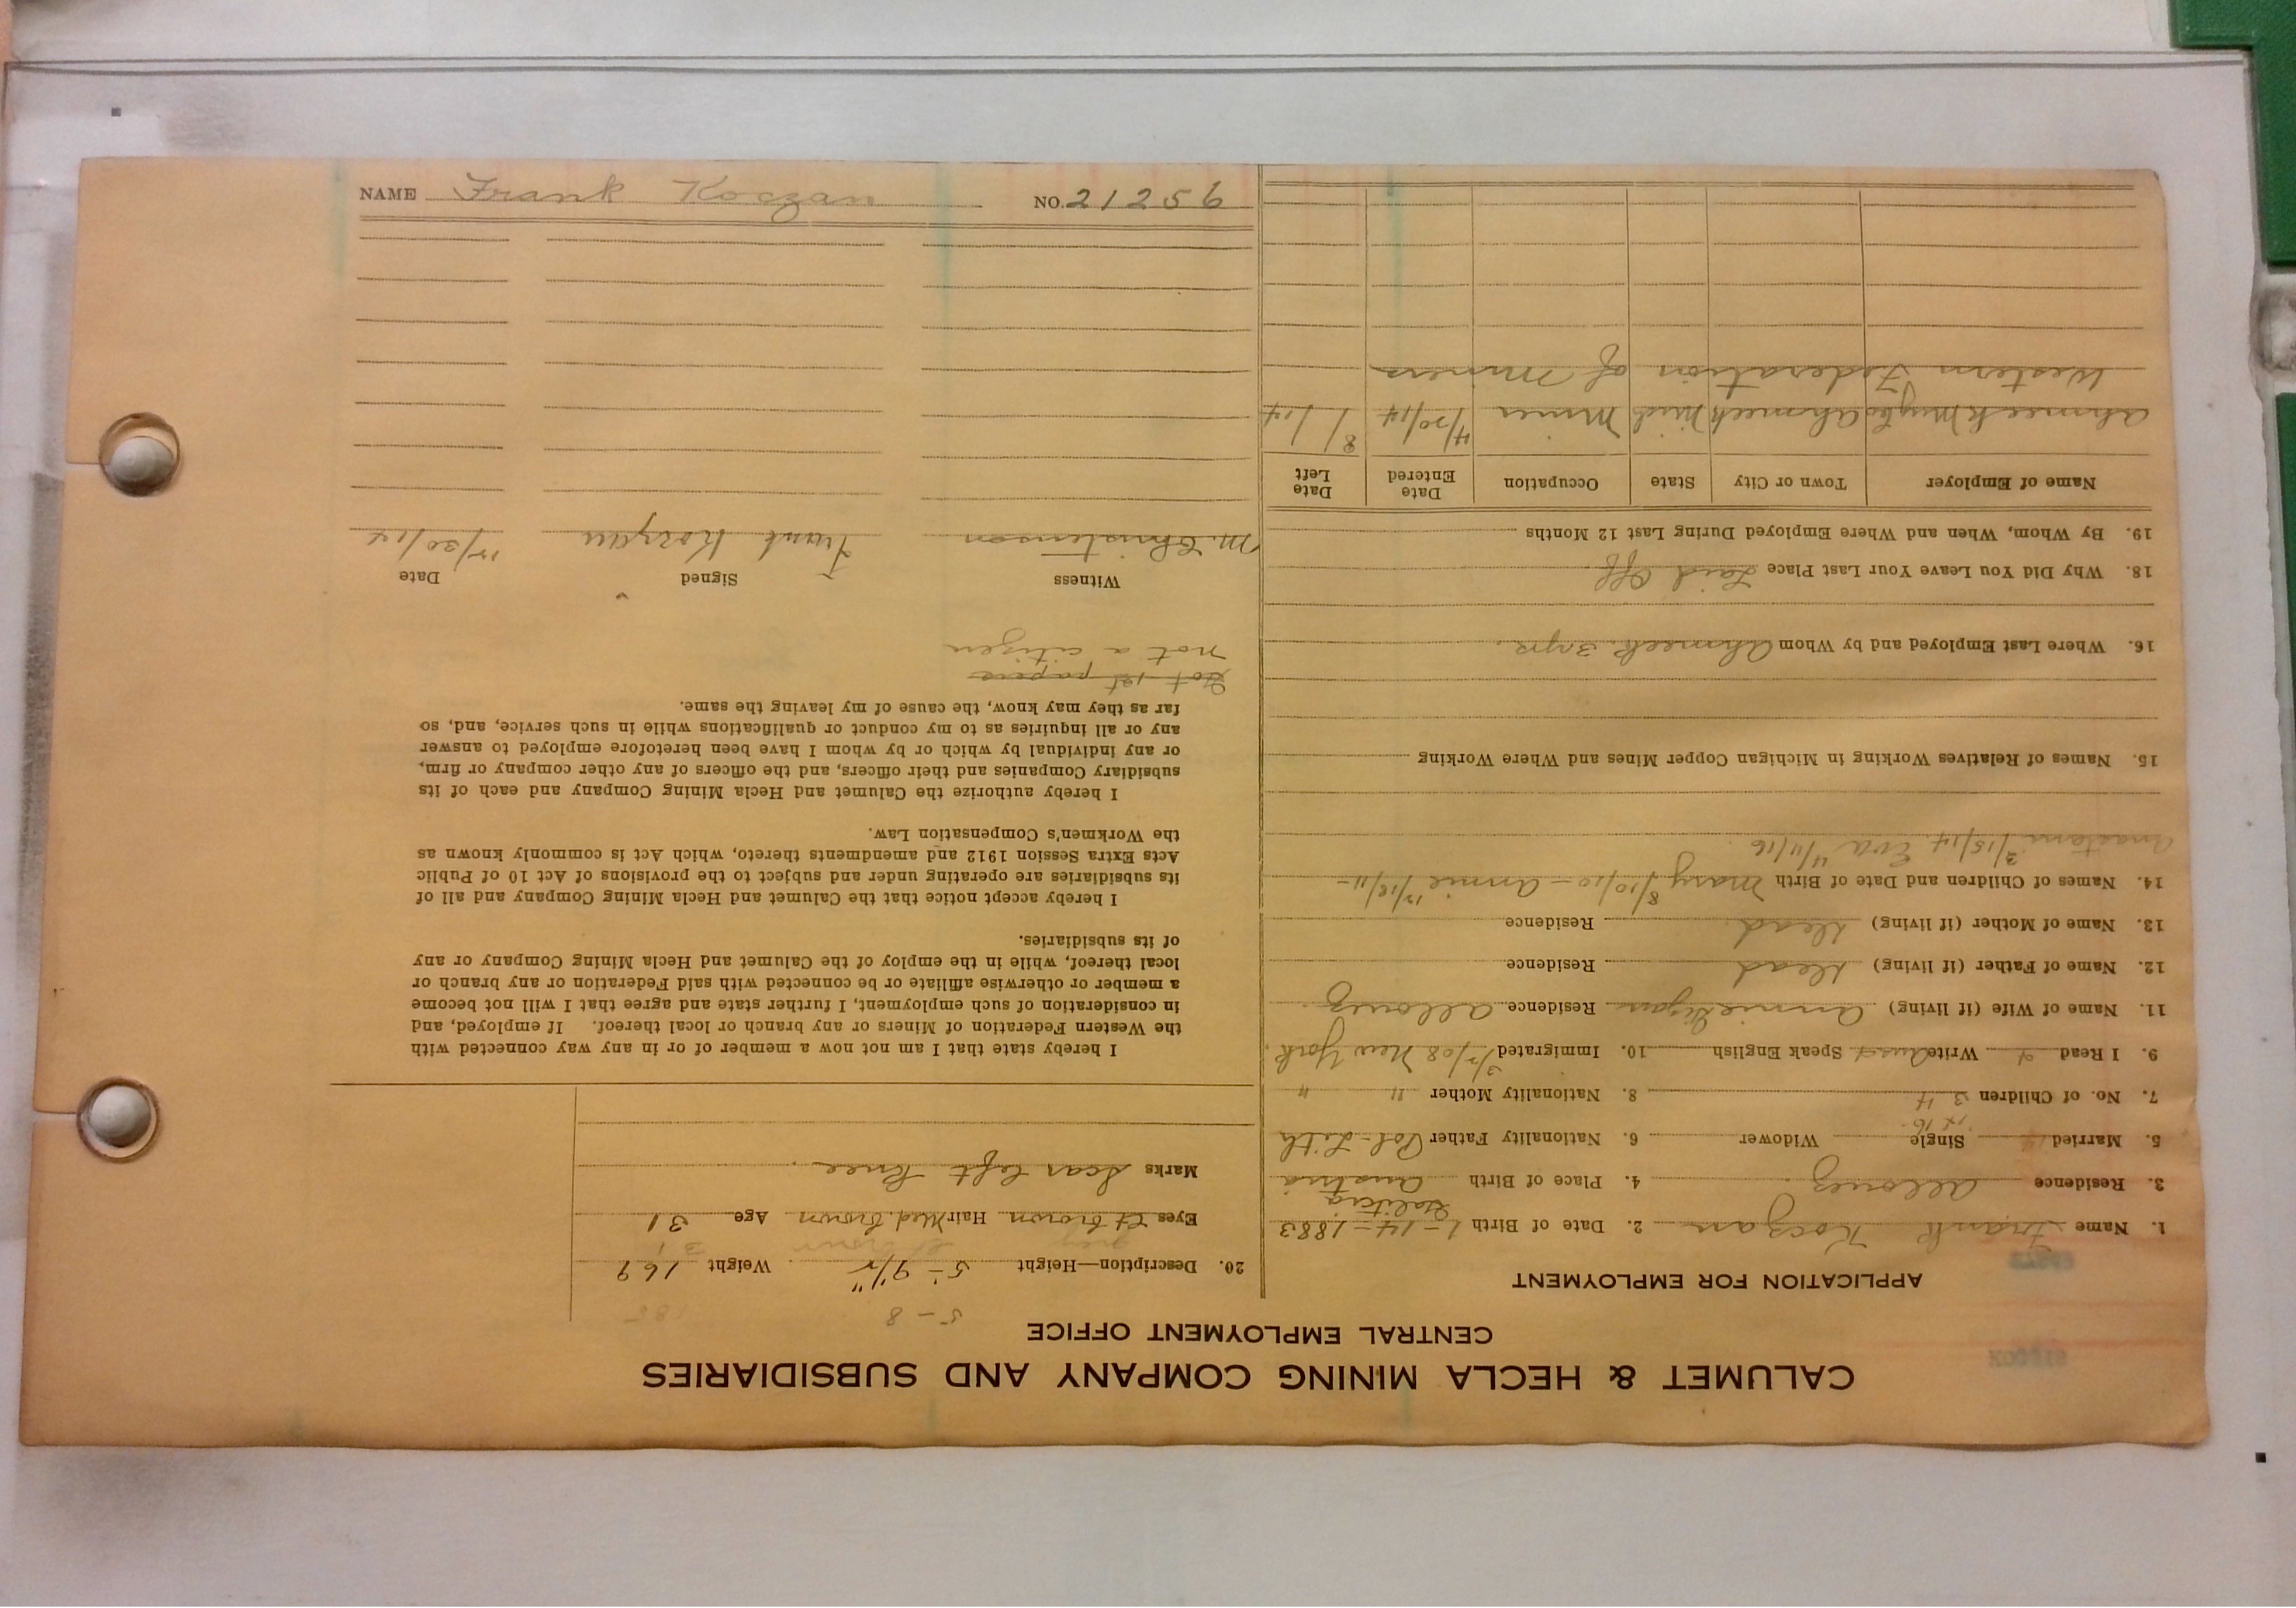 CALUMET & HECLA MINING COMPANY AND SUBSIDIARIES
CENTRAL EMPLOYMENT OFFICE
APPLICATION FOR EMPLOYMENT
1. Name Frank Koczan 2. Date of Birth 1-14-1883
3. Residence Allouez 4. Place of Birth Galitcia Austria
5. Married Single Widower 6. Nationality Father Pol-Lith
7. No. of Children 3 4 8. Nationality Mother " "
9. I Read Write Speak English 10. Immigrated 3/2/08 New York
11. Name of Wife (if living) Annie Residence Allouez
12. Name of Father (if living) Dead Residence
13. Name of Mother (if living) Dead Residence
14. Names of Children and Date of Birth Mary 8/10/10 - Annie 12/18/11 -
3/15/14. Eva 4/11/16
15. Names of Relatives Working in Michigan Copper Mines and Where Working
16. Where Last Employed and by Whom Ahmeek 3 yrs.
18. Why Did You Leave Your Last Place Laid Off
19. By Whom, When and Where Employed During Last 12 Months
Name of Employer Town or City State Occupation Date Entered Date Left
Ahmeek Mng Co Ahmeek Mich Miner 4/20/14 8/1/14
Western Federation of Miners
5-8 185
20. Description—Height 5'-9½" Weight 169
Eyes Lt brown Hair Med. brown Age 31
Marks Scar left knee.
I hereby state that I am not now a member of or in any way connected with
the Western Federation of Miners or any branch or local thereof. If employed, and
in consideration of such employment, I further state and agree that I will not become
a member or otherwise affiliate or be connected with said Federation or any branch or
local thereof, while in the employ of the Calumet and Hecla Mining Company or any
of its subsidiaries.
I hereby accept notice that the Calumet and Hecla Mining Company and all of
its subsidiaries are operating under and subject to the provisions of Act 10 of Public
Acts Extra Session 1912 and amendments thereto, which Act is commonly known as
the Workmen's Compensation Law.
I hereby authorize the Calumet and Hecla Mining Company and each of its
subsidiary Companies and their officers, and the officers of any other company or firm,
or any individual by which or by whom I have been heretofore employed to answer
any or all inquiries as to my conduct or qualifications while in such service, and, so
far as they may know, the cause of my leaving the same.
Got 1st papers
not a citizen
Witness Signed Date
M. Christenson Frank Koczan 12/30/14
NAME Frank Koczan NO. 21256